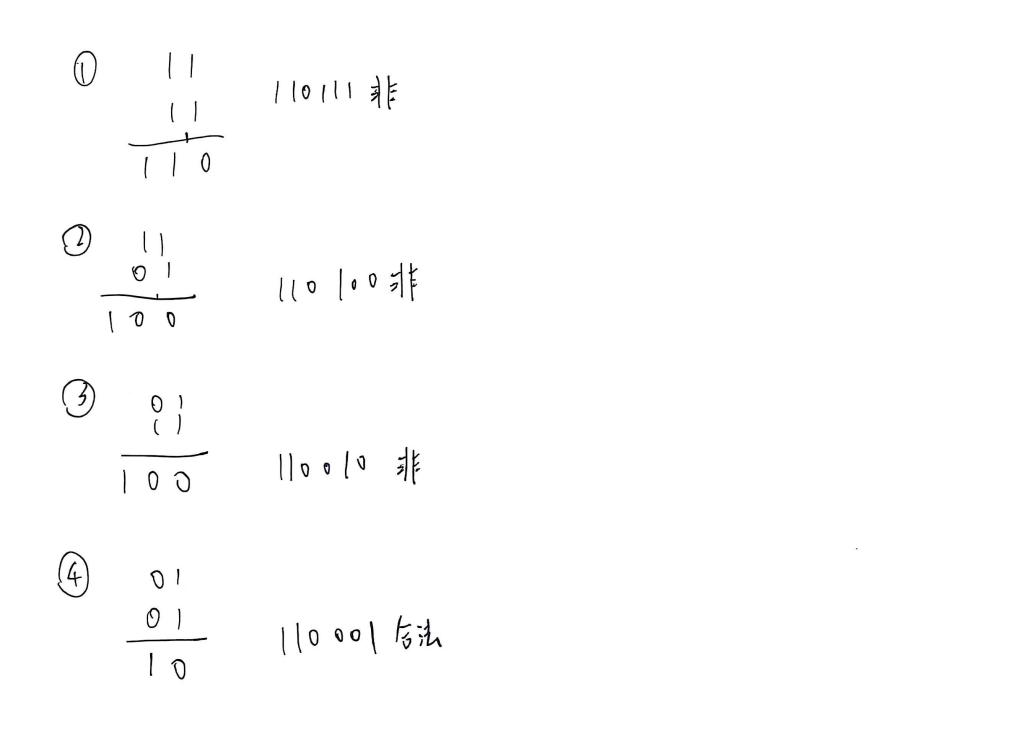 ① 11
11 110111 非
110
② 11
01 110100 非
100
③ 01
11
100 110010 非
④ 01
01 110001 合法
10